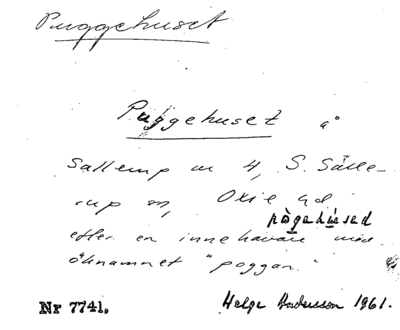 Puggehuset
Puggehuset å
Sallerup nr 4, S. Sälle-
rup sn, Oxie hd
pògahúsad
efter en innehavare med
öknamnet "poggan."
Nr 7741. Helge Andersson 1961.